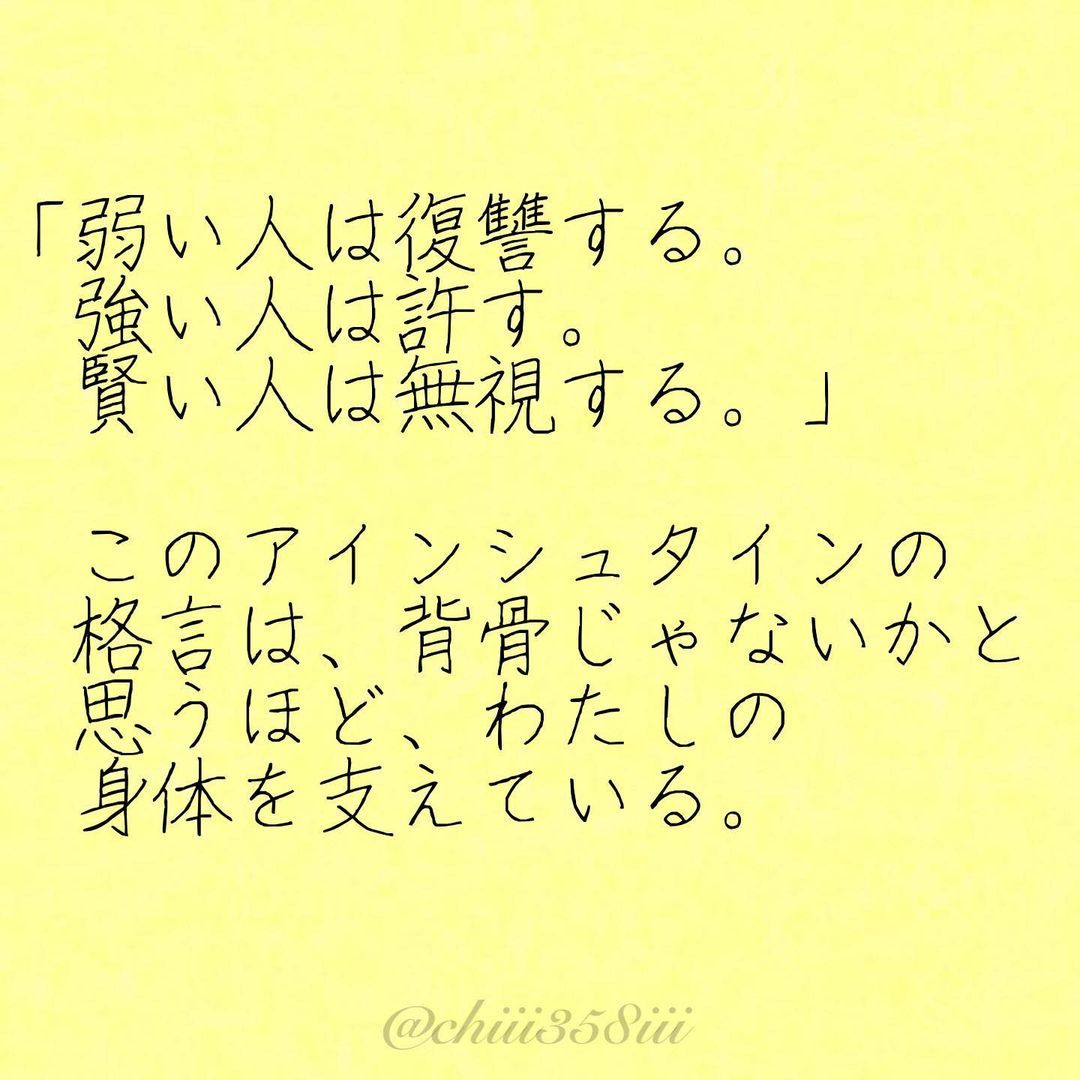 「弱い人は復讐する。
強い人は許す。
賢い人は無視する。」
このアインシュタインの
格言は、背骨じゃないかと
思うほど、わたしの
身体を支えている。
@chiii358iii